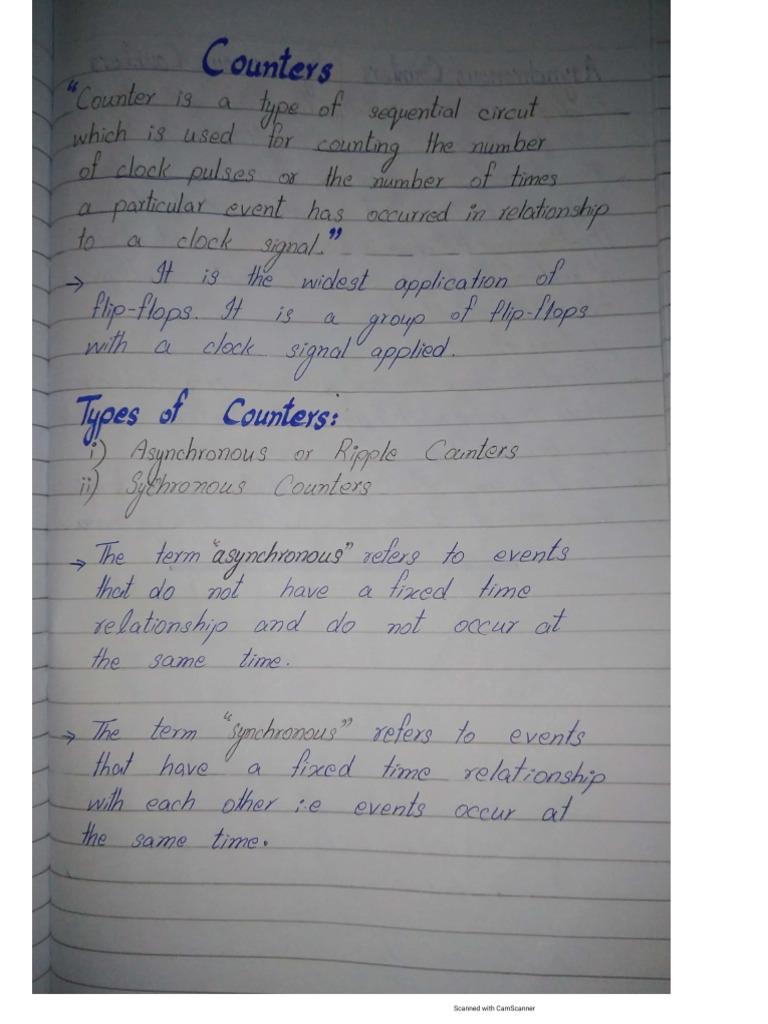 Counters
"Counter is a type of sequential circut
which is used for counting the number
of clock pulses or the number of times
a particular event has occurred in relationship
to a clock signal."
→ It is the widest application of
flip-flops. It is a group of flip-flops
with a clock signal applied.
Types of Counters:
i) Asynchronous or Ripple Counters
ii) Sychronous Counters
→ The term "asynchronous" refers to events
that do not have a fixed time
relationship and do not occur at
the same time.
→ The term "synchronous" refers to events
that have a fixed time relationship
with each other i.e events occur at
the same time.
Scanned with CamScanner